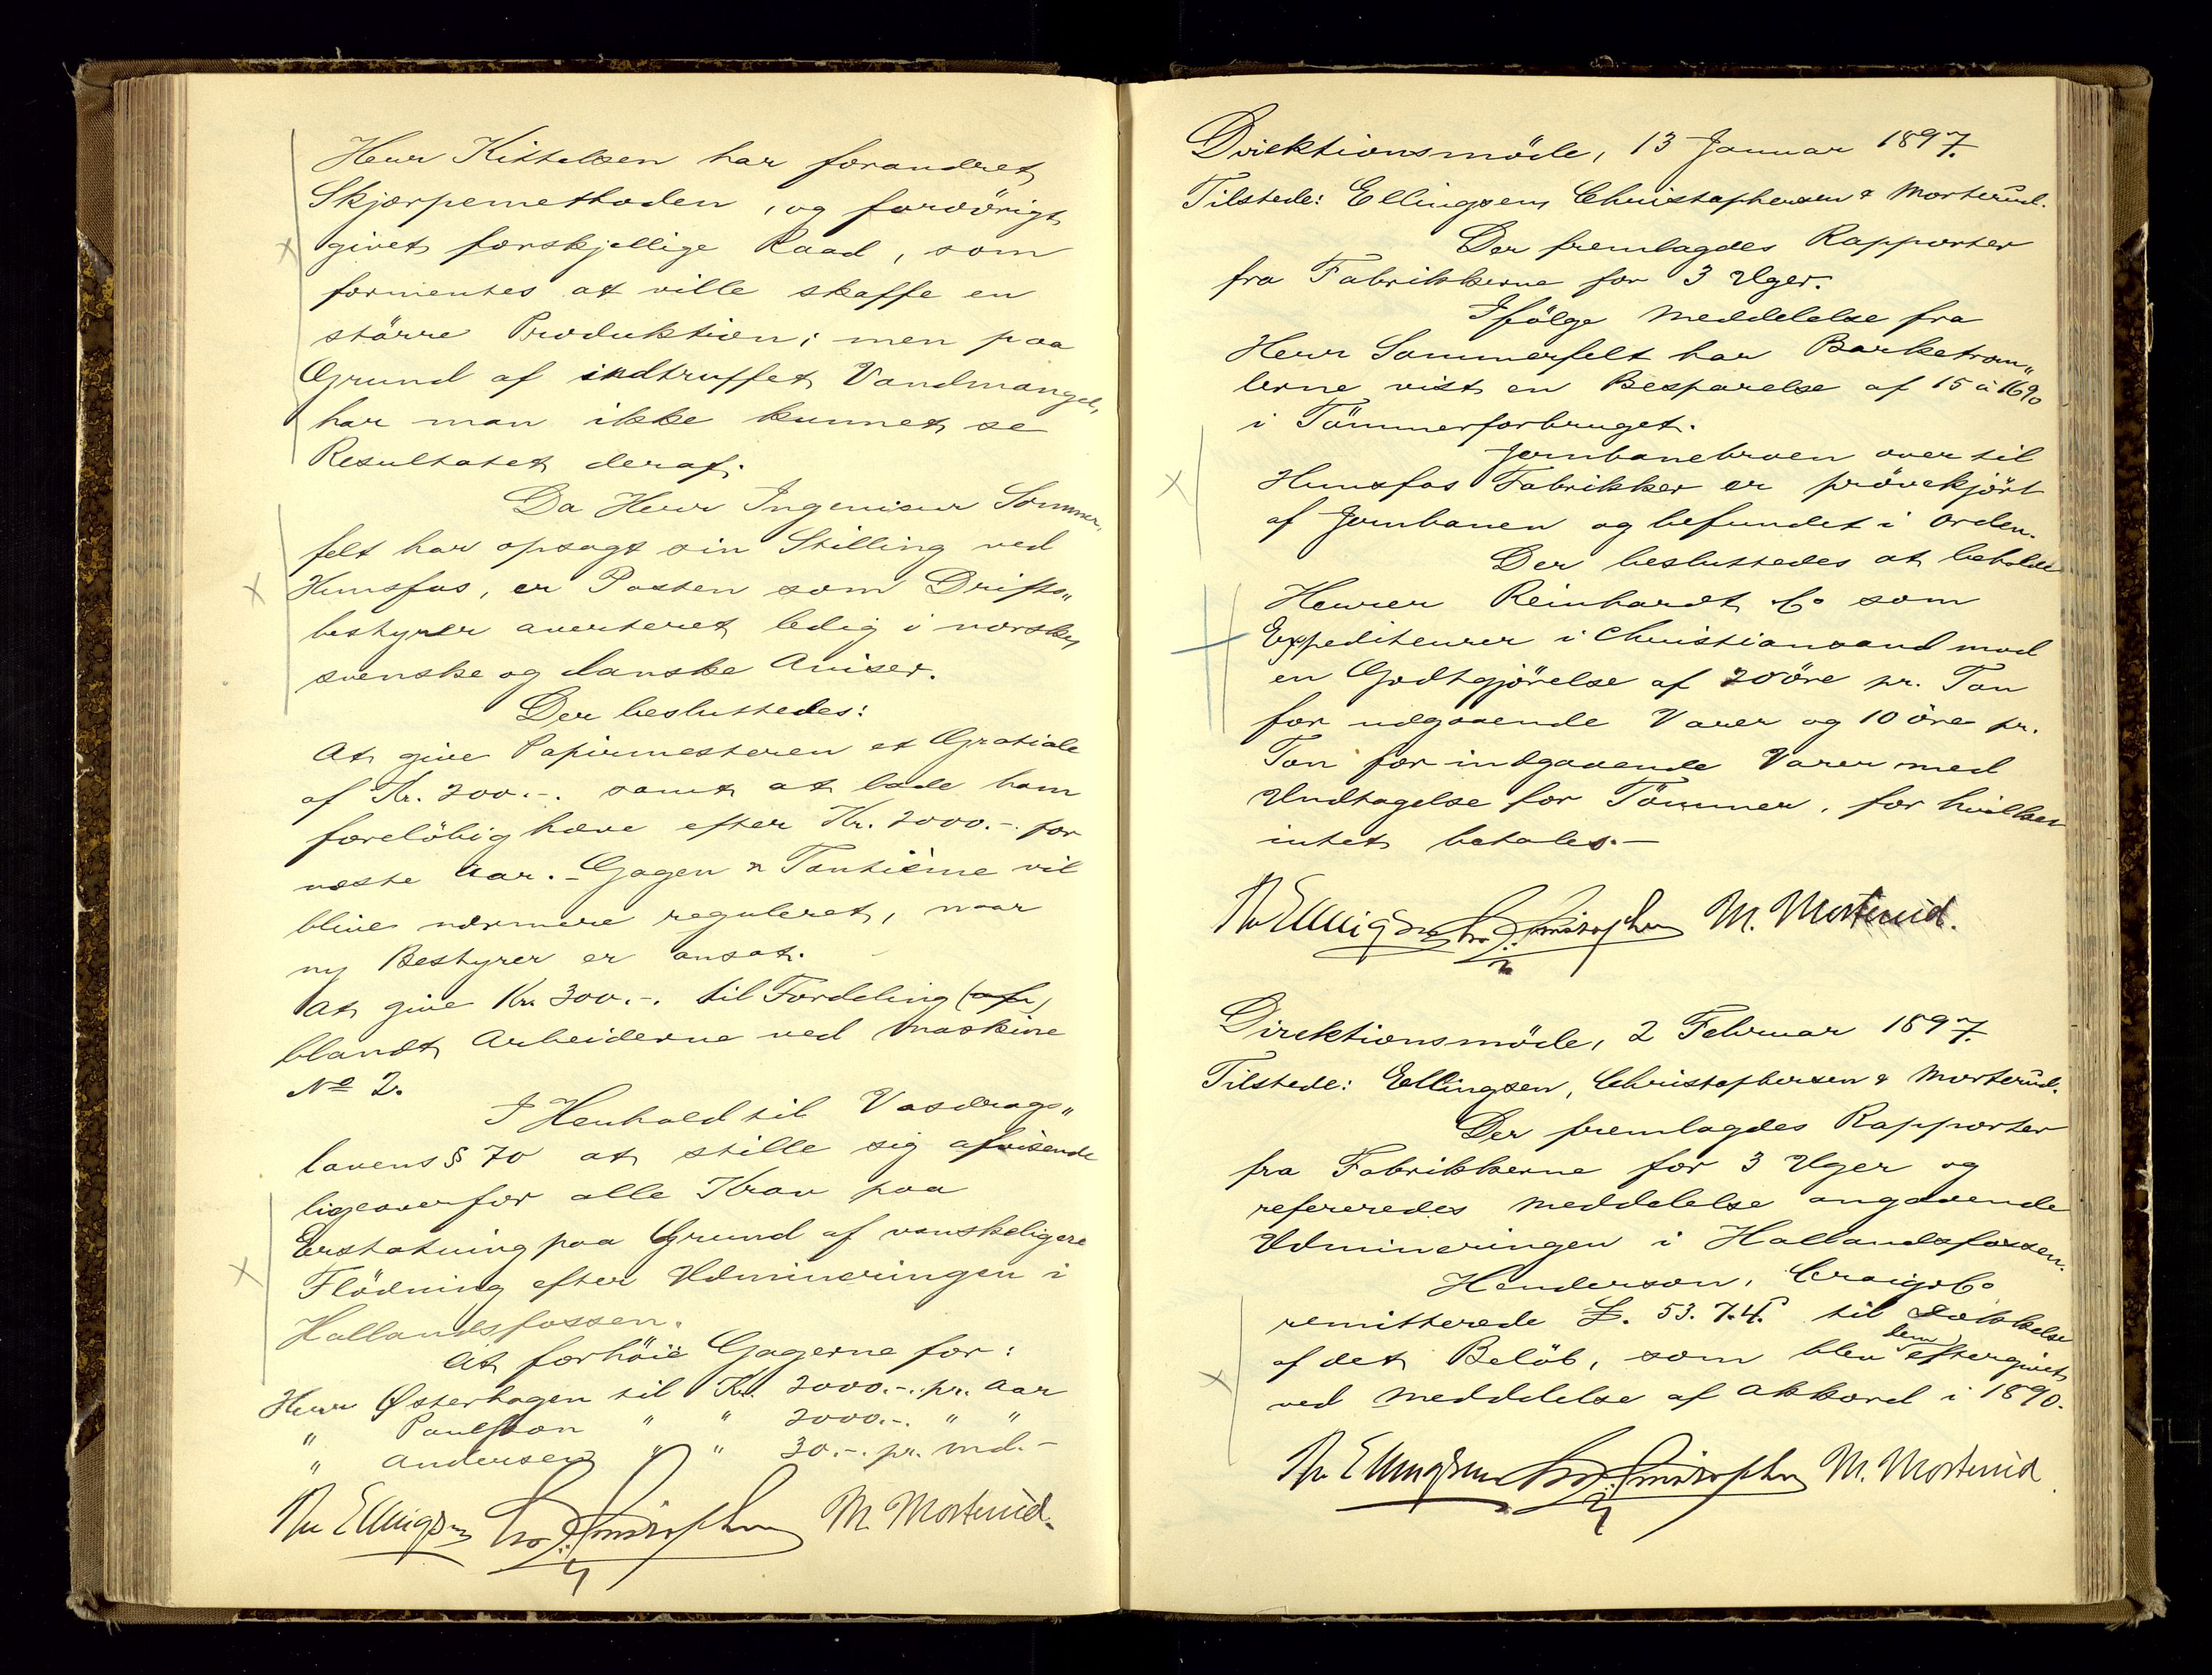 Herr Kittelsen har forandret
Skjærpemethoden, og forøvrigt
givet forskjellige Raad, som
formentes at ville skaffe en
större Produktion; men paa
Grund af indtruffet Vandmangel,
har man ikke kunnet se
Resultatet deraf.
Da Herr Ingeniør Sommer„
felt har opsagt sin Stilling ved
Hunsfos, er Posten som Drifts„
bestyrer averteret ledig i norske,
svenske og danske Aviser.
Der besluttedes:
At give Papirmesteren et Gratiale
af Kr. 200.-. samt at lade ham
foreløbig hæve efter Kr. 2000.-. for
næste Aar. - Gagen & Tantième vil
blive nærmere reguleret, naar
ny Bestyrer er ansat.
At give Kr 300.-. til Fordeling (afr)
blandt Arbeiderne ved Maskine
No 2.
I Henhold til Vasdrags„
lovens § 70 at stille sig afvisende
ligeoverfor alle Krav paa
Erstatning paa Grund af vanskeligere
Flödning efter Udmineringen i
Hallandsfossen.
At forhöie Gagerne for:
Herr Østerhagen til Kr. 2000.-. pr. Aar
" Paulsson " " 2000.-. " "
" Andersen " " 30.-. pr. md.-
Th Ellingsen Chr. Christophersen M. Mosterud.
Direktionsmöde, 13 Januar 1897.
Tilstede: Ellingsen, Christophersen & Mosterud.
Der fremlagdes Rapporter
fra Fabrikkerne for 3 Uger.
Ifölge Meddelelse fra
Herr Sommerfelt har Barketrom„
lerne vist en Besparelse af 15 à 16%
i Tömmerforbruget.
Jernbanebroen over til
Hunsfos Fabrikker er prövekjört
af Jernbanen og befundet i Orden.
Der besluttedes at beholde
Herrer Reinhardt & Co som
Expediteurer i Christiansand mod
en Godtgjörelse af 20 öre pr. Ton
for udgaaende Varer og 10 öre pr.
Ton for indgaaende Varer med
Undtagelse for Tömmer, for hvilket
intet betales.-
Th Ellingsen Chr. Christophersen M. Mosterud.
Direktionsmöde, 2 Februar 1897.
Tilstede: Ellingsen, Christophersen & Mosterud.
Der fremlagdes Rapporter
fra Fabrikkerne for 3 Uger og
refereredes Meddelelse angaaende
Udmineringen i Hallandsfossen.
Henderson, Craig & Co
remitterede £. 53. 7. 4. til Dækkelse
af det Belöb, som blev dem eftergivet
ved Meddelelse af Akkord i 1890.
Th Ellingsen Chr. Christophersen M. Mosterud